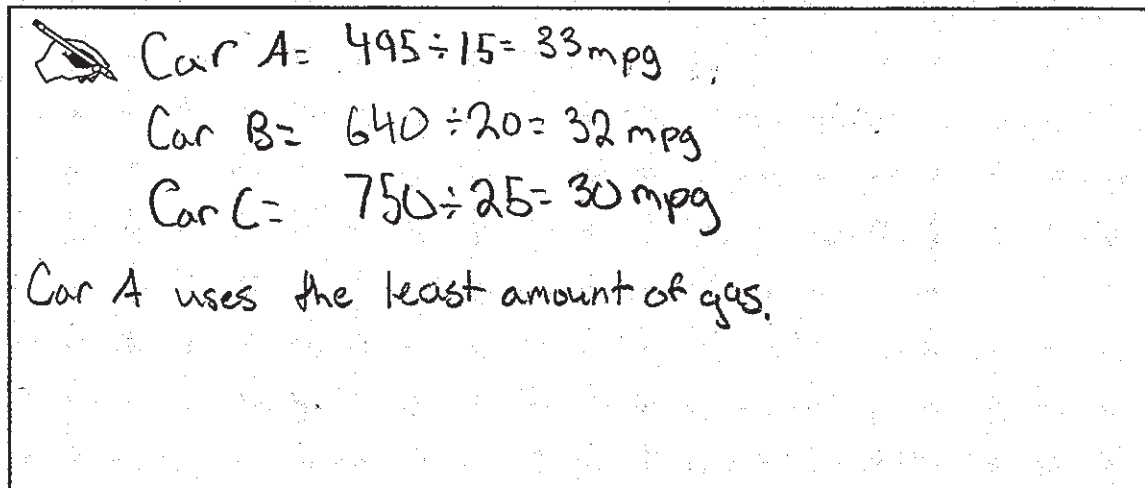 Car A= 495÷15= 33mpg
Car B= 640÷20= 32 mpg
Car C= 750÷25= 30 mpg
Car A uses the least amount of gas.